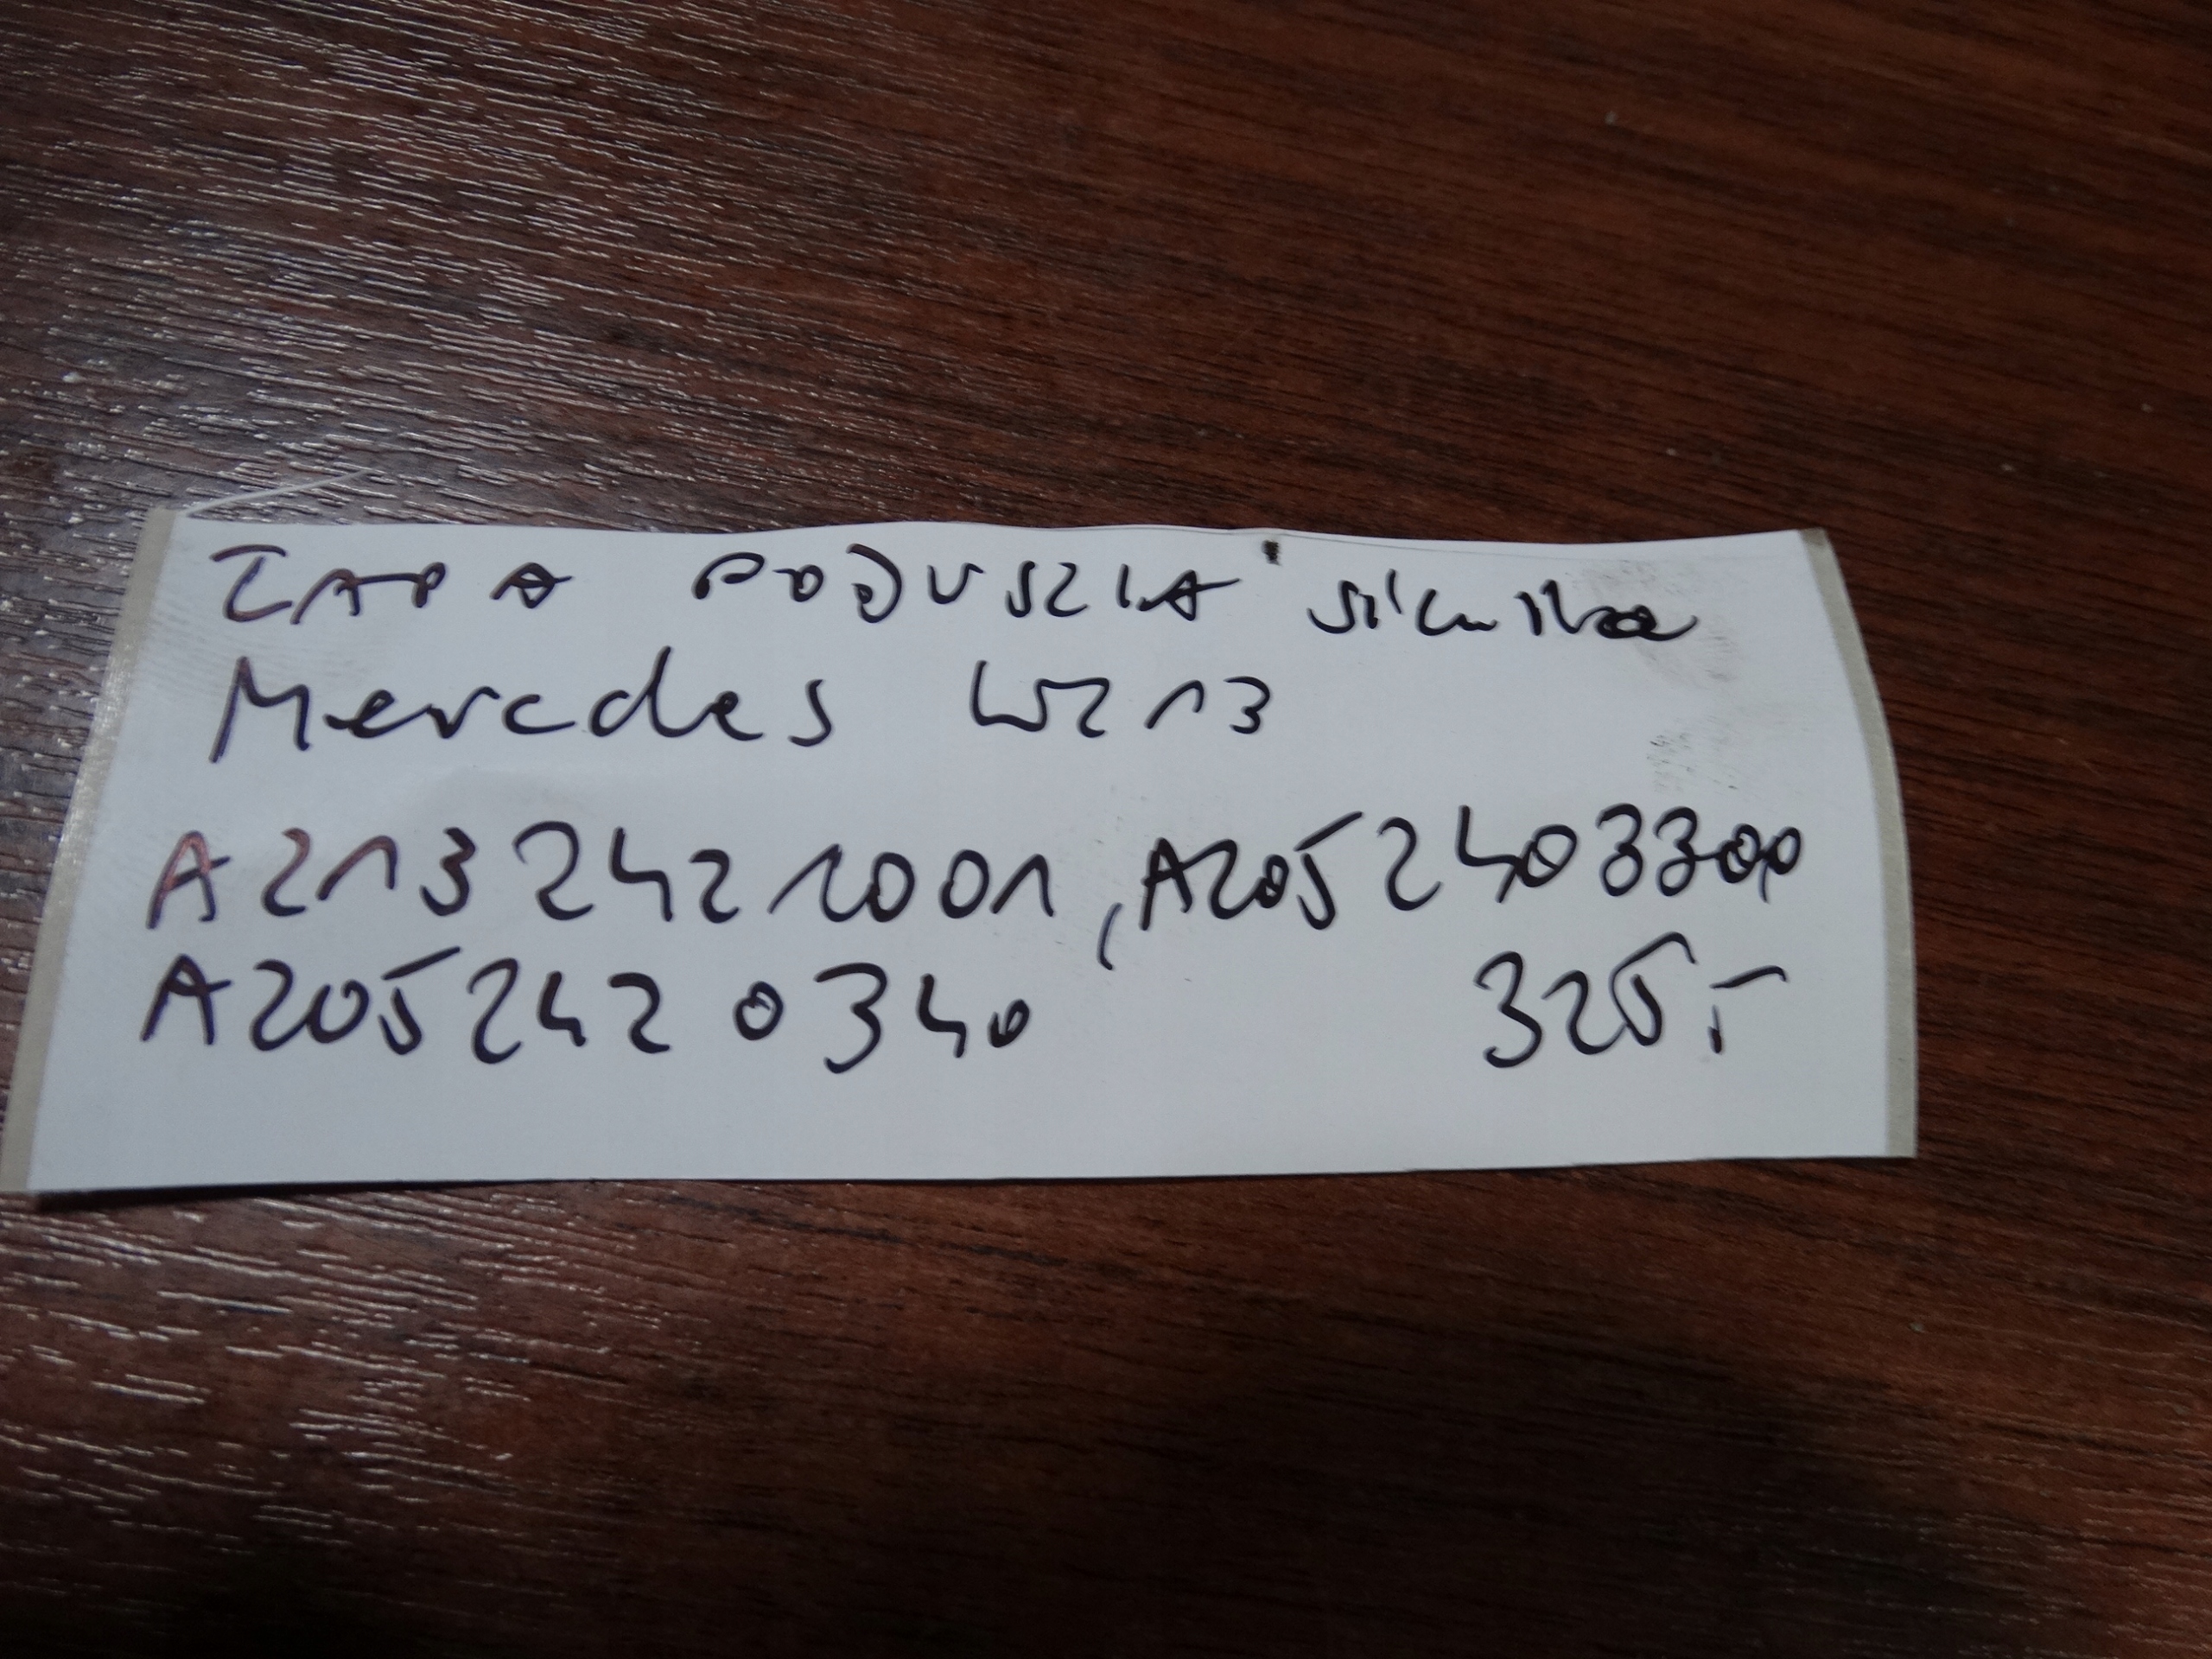 ŁAPA PODUSZKA silnika
Mercedes W213
A213 242 1001, A205 240 3300
A205 242 0340 325,-